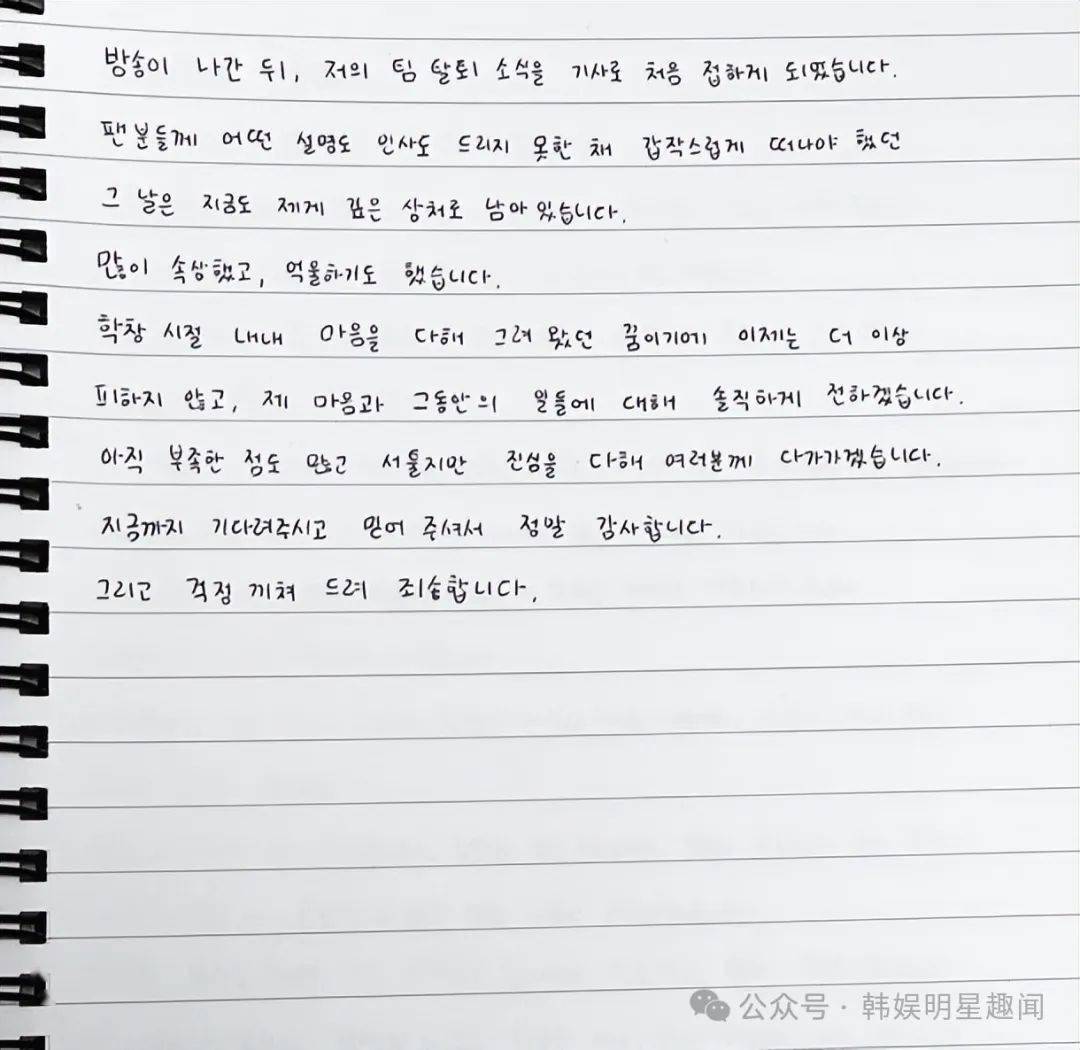 방송이 나간 뒤, 저의 팀 탈퇴 소식을 기사로 처음 접하게 되었습니다.
팬분들께 어떤 설명도 인사도 드리지 못한 채 갑작스럽게 떠나야 했던
그 날은 지금도 제게 깊은 상처로 남아있습니다.
많이 속상했고, 억울하기도 했습니다.
학창 시절 내내 마음을 다해 그려 왔던 꿈이기에 이제는 더 이상
피하지 않고, 제 마음과 그동안의 일들에 대해 솔직하게 전하겠습니다.
아직 부족한 점도 많고 서툴지만 진심을 다해 여러분께 다가가겠습니다.
지금까지 기다려주시고 믿어 주셔서 정말 감사합니다.
그리고 걱정 끼쳐 드려 죄송합니다.
公众号·韩娱明星趣闻